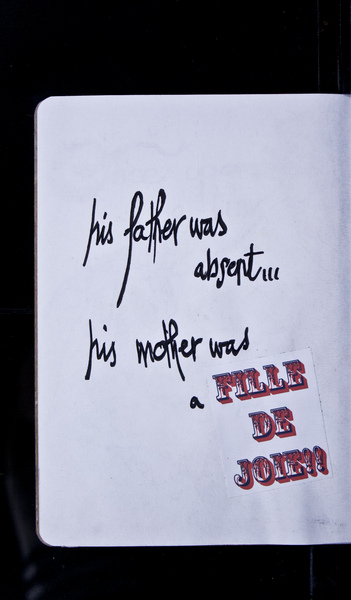 his father was
absent...
his mother was
a FILLE
DE
JOIE!!